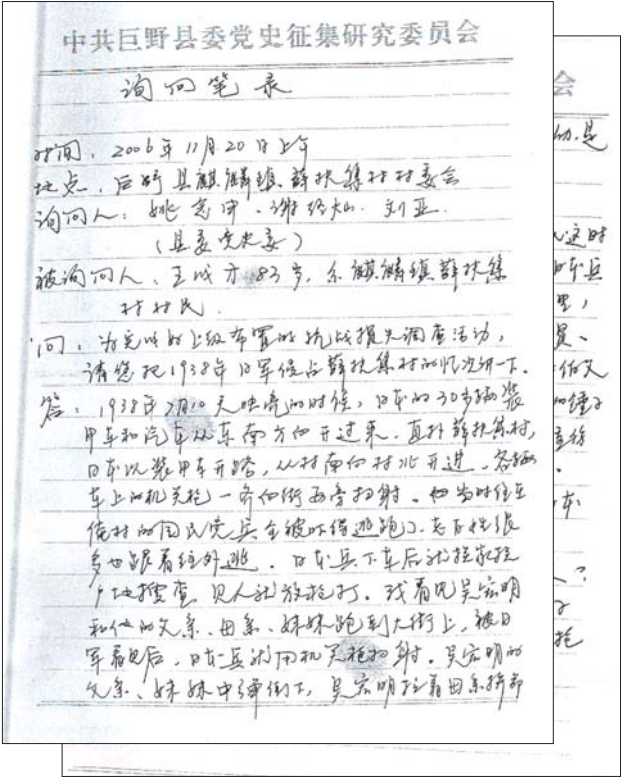 中共巨野县委党史征集研究委员会
询问笔录
时间：2006年11月20日上午
地点：巨野县麒麟镇薛扶集村村委会
询问人：姚 谢 刘亚
（县委党史委）
被询问人：王 83岁，系麒麟镇薛扶集
村村民
问：为完成好上级布置的抗战损失调查活动，
请您把1938年日军侵占薛扶集村的情况讲一下。
答：1938年 月10天 亮的时候，日本的30多辆装
甲车和汽车从东南方向开过来，直扑薛扶集村，
日本以装甲车开路，从村南向村北开进，各辆
车上的机关枪一齐向街两旁扫射。 当时住在
俺村的国民党兵全被吓得逃跑了，老百姓很
多也跟着往外逃。日本兵下车后就挨家挨
户地搜查，见人就放枪打。我看见吴宏明
和他的父亲、母亲、妹妹跑到大街上，被日
军看见后，日本兵就用机关枪扫射。吴宏明的
父亲、妹妹中弹倒下，吴宏明拉着母亲拼命
会
是
这时
日本兵
里，
员、
本
？
枪